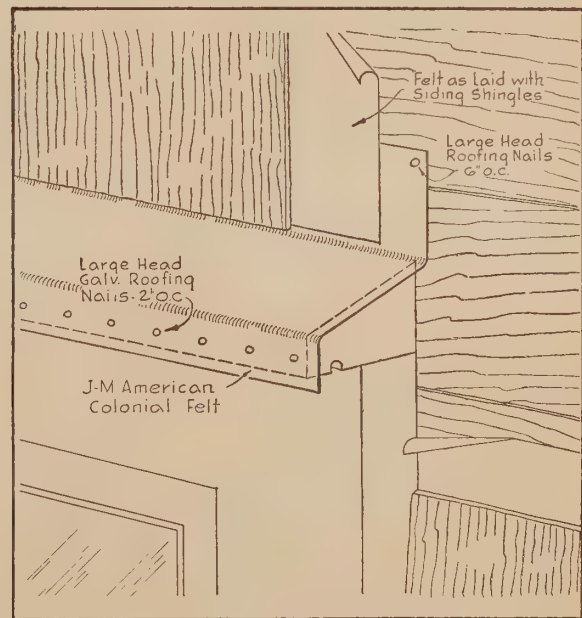 Felt as laid with
Siding Shingles
Large Head
Roofing Nails
6" O.C.
Large Head
Galv. Roofing
Nails - 2" O.C.
J-M American
Colonial Felt